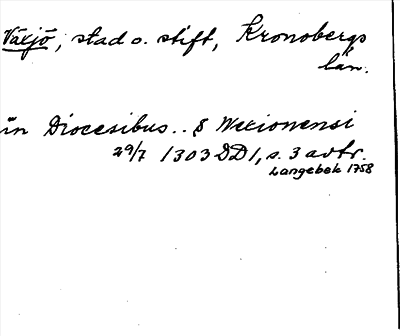 Växjö, stad o. stift, Kronobergs
län.
in Diocesibus.. & Wexionensi
29/7 1303 DD1, s. 3 avtr.
Langebek 1758